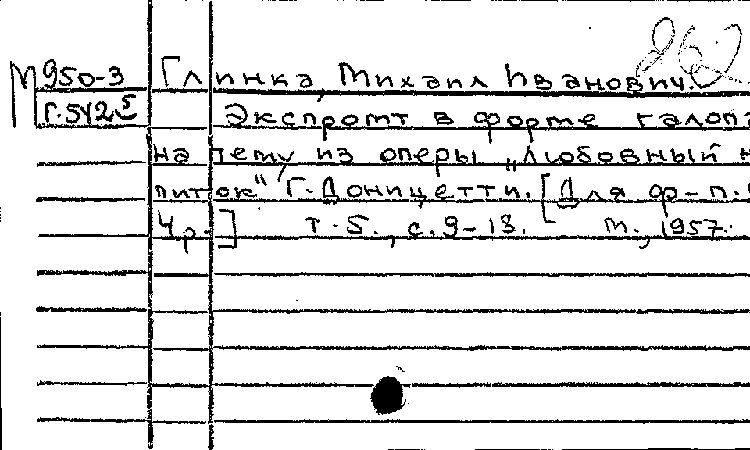 862
М 950-3 Глинка, Михаил Иванович.
Г.542 5 Экспромт в форме галопа
на тему из оперы „Любовный н
питок" Г. Доницетти. [Для ф-п. в
4 р.] Т. 5., с. 9-13. М., 1957.